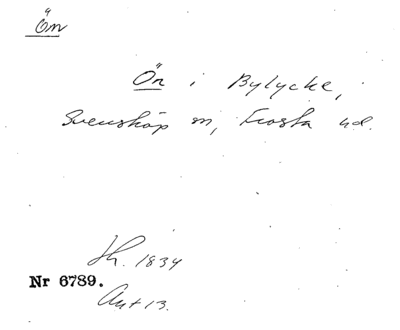 Ön
Ön i Bylycke,
Svensköp sn, Frosta hd.
Lh. 1834
Nr 6789.
Ant 13.